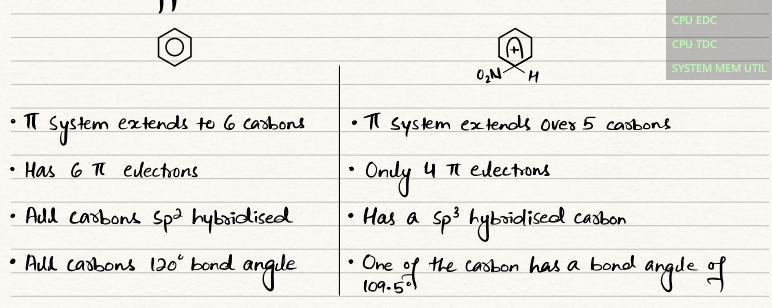 CPU EDC
CPU TDC
SYSTEM MEM UTIL
O₂N H
• π system extends to 6 carbons
• Has 6 π electrons
• All carbons sp² hybridised
• All carbons 120° bond angle
+
• π system extends over 5 carbons
• Only 4 π electrons
• Has a sp³ hybridised carbon
• One of the carbon has a bond angle of
109.5°